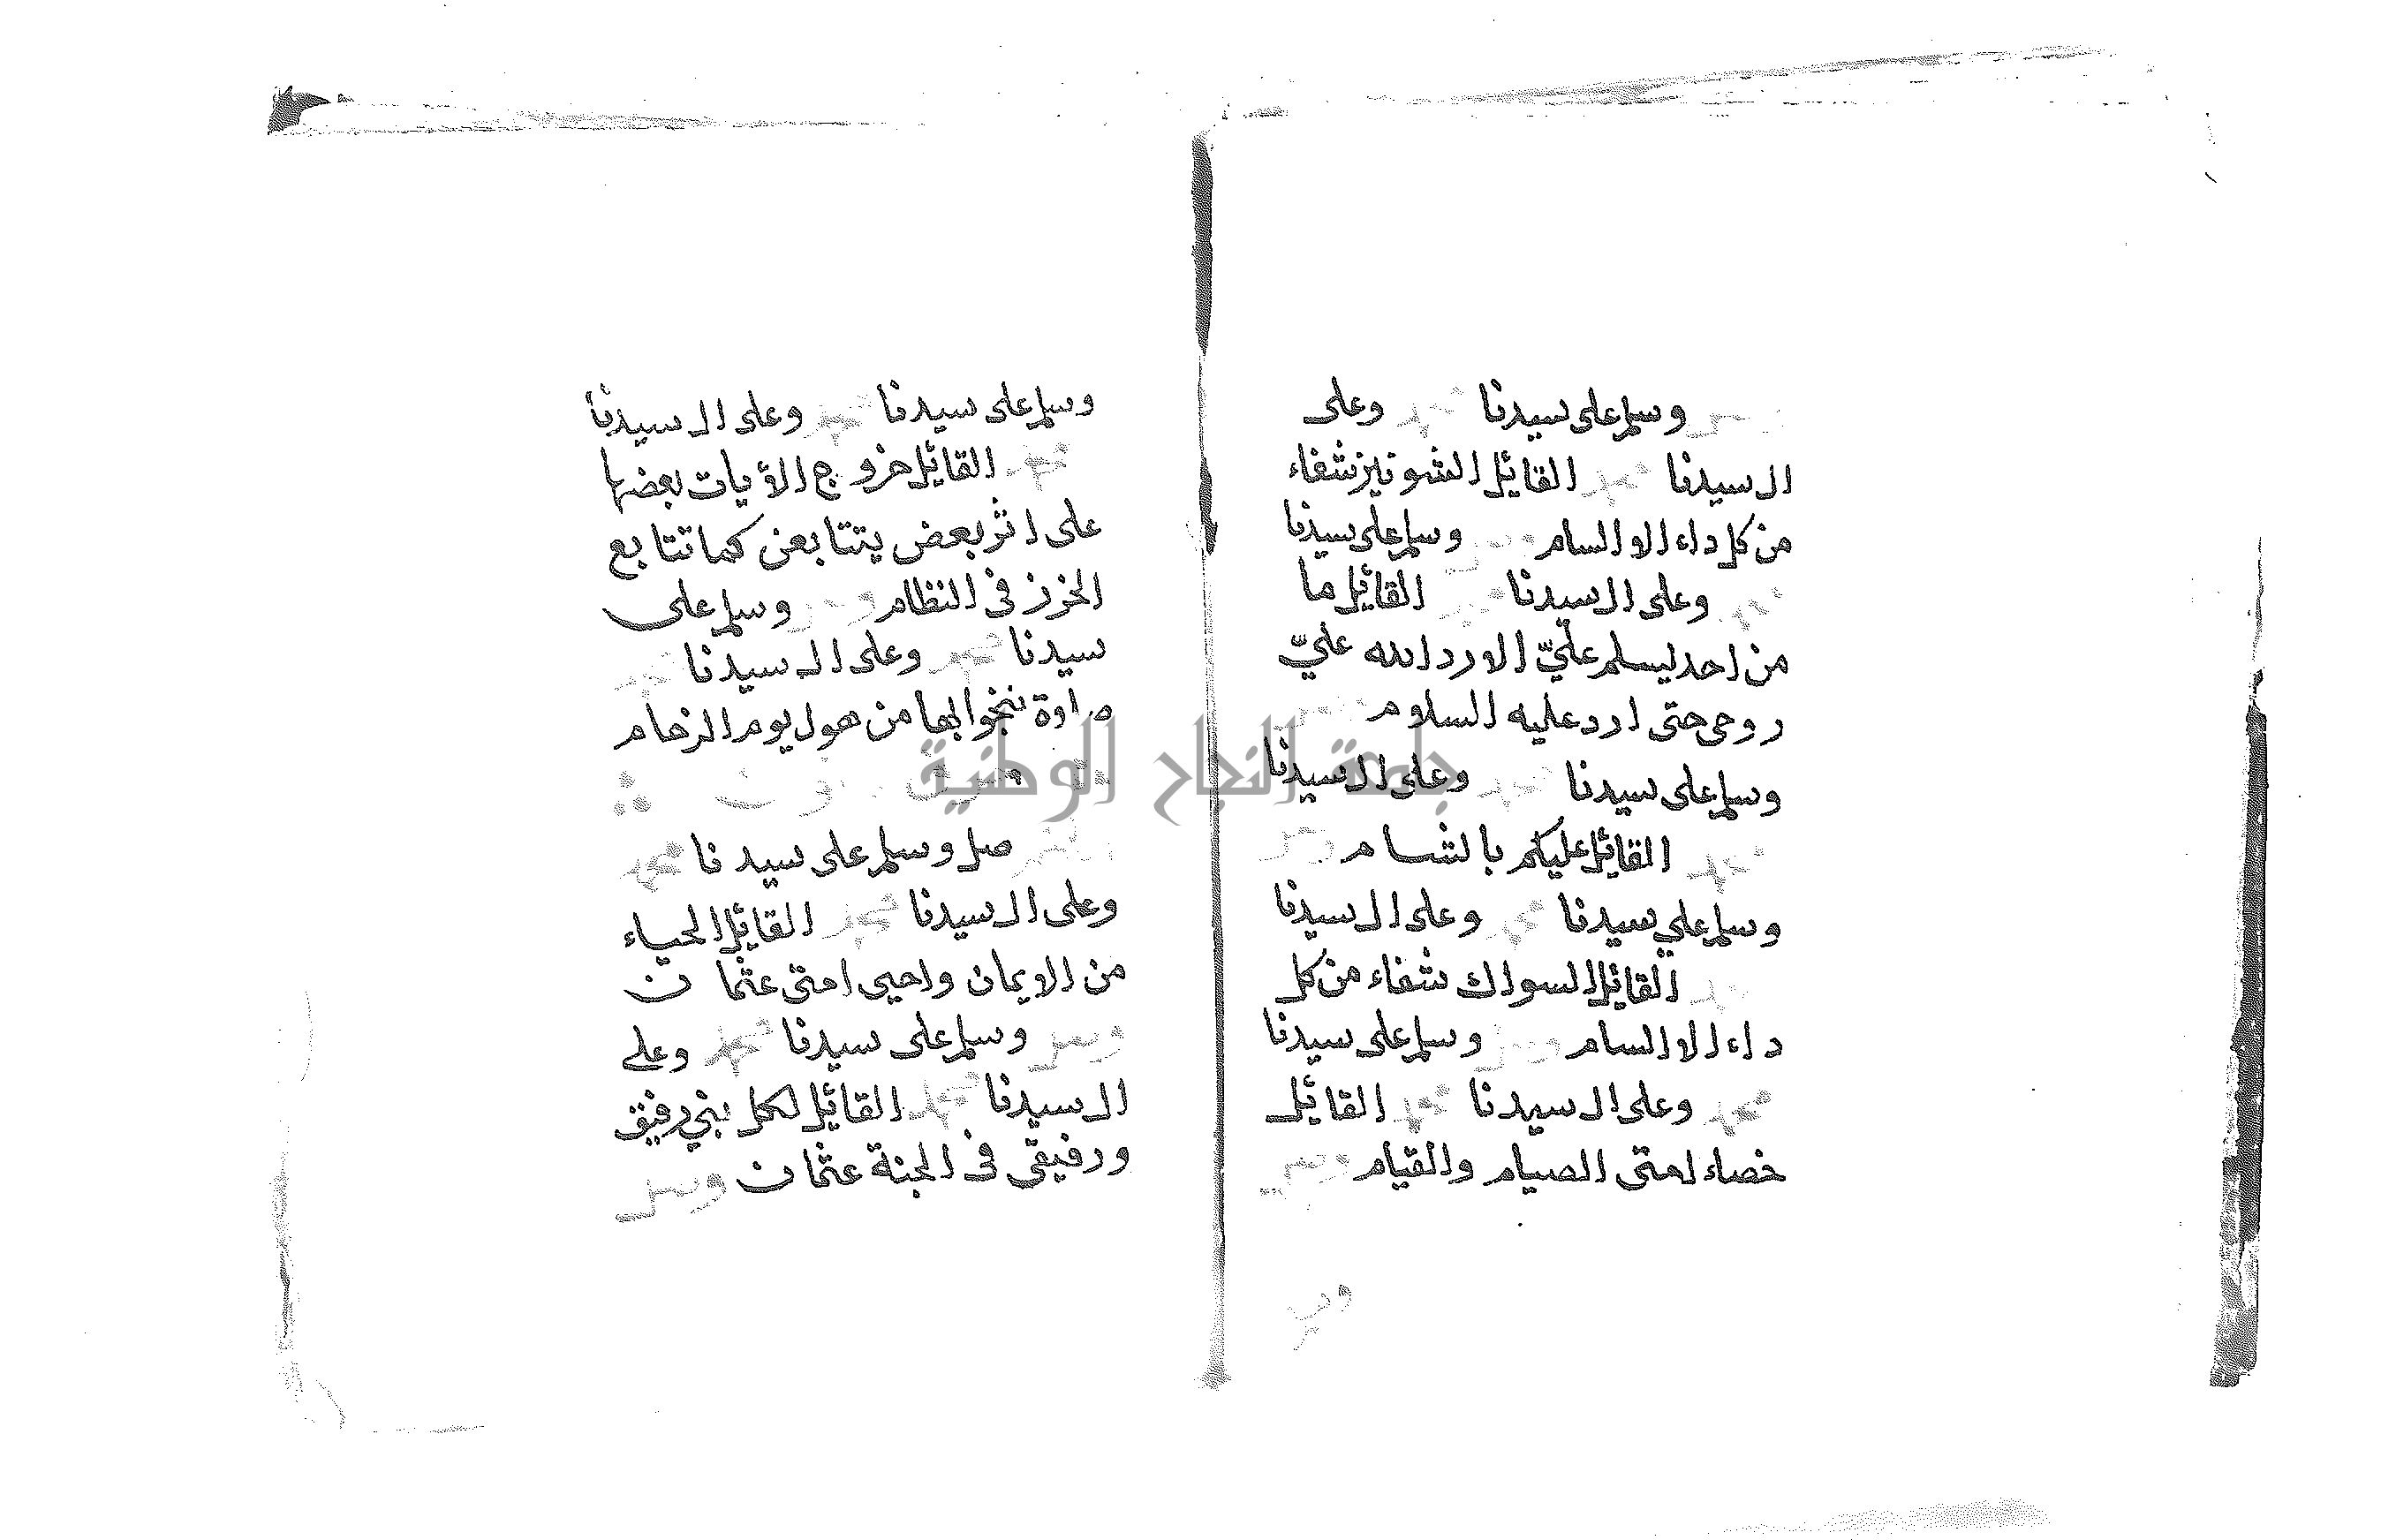 وسلم على سيدنا محمد وعلى
ال سيدنا محمد القائل الشونيز شفاء
من كل داء الا السام وصل وسلم على سيدنا
محمد وعلى ال سيدنا القائل ما
من احد ليسلم عليّ الا رد الله عليّ
روحي حتى ارد عليه السلام
وسلم على سيدنا محمد وعلى ال سيدنا
محمد القائل عليكم بالشام وصل
وسلم علي سيدنا محمد وعلى ال سيدنا
محمد القائل السواك شفاء من كل
داء الا السام وصل وسلم على سيدنا
محمد وعلى ال سيدنا محمد القائل
خصاء امتى الصيام والقيام وصل
وسلم على سيدنا محمد وعلى ال سيدنا
محمد القائل خروج الأيات بعضها
على اثر بعض يتتابعن كما تتابع
الخرز فى النظام وصل وسلم على
سيدنا محمد وعلى ال سيدنا محمد
صلوة ننجوا بها من هول يوم الزحام
حرف
صل وسلم على سيدنا محمد
وعلى ال سيدنا محمد القائل الحياء
من الايمان واحيى امتى عثمان
وصل وسلم على سيدنا محمد وعلى
ال سيدنا محمد القائل لكل بني رفيق
ورفيقى فى الجنة عثمان وصل
جامعة النجاح الوطنية